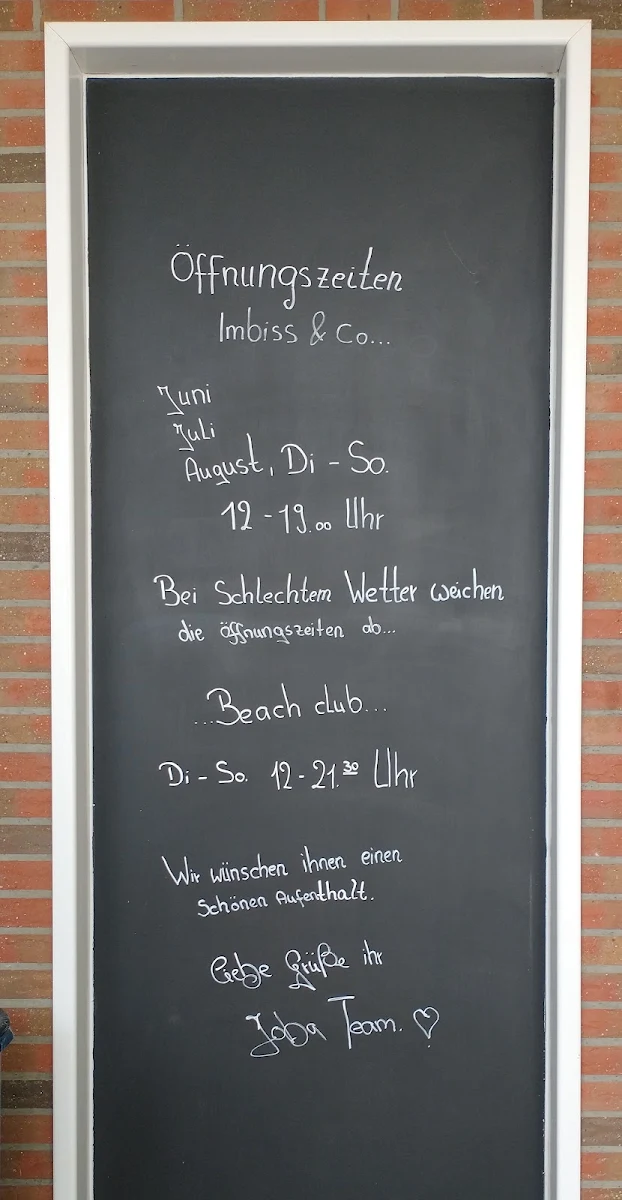 Öffnungszeiten
Imbiss & Co...
Juni
Juli
August, Di - So.
12 - 19.00 Uhr
Bei Schlechtem Wetter weichen
die öffnungszeiten ab...
...Beach club...
Di - So. 12 - 21.30 Uhr
Wir wünschen ihnen einen
Schönen Aufenthalt.
Liebe Grüße ihr
Joba Team. ♡